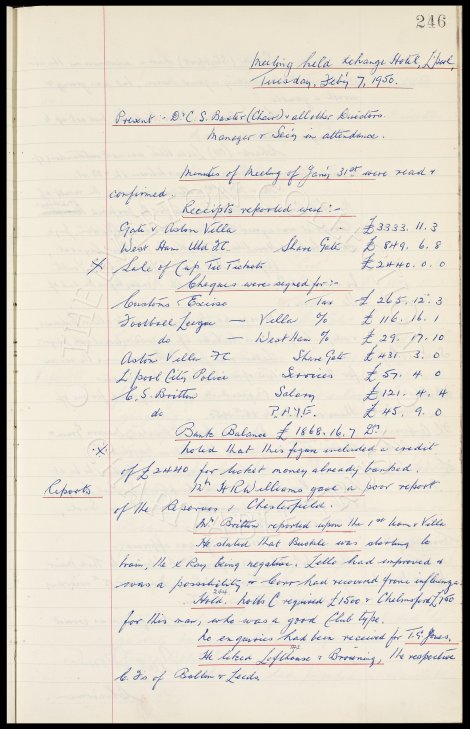 246
Meeting held Exchange Hotel, L'pool,
Tuesday, Feb'y 7, 1950.
Present :- Dr C. S. Baxter (Chair) & all other Directors.
Manager & Sec'y in attendance.
Minutes of Meeting of Jan'y 31st were read &
confirmed.
Receipts reported were :-
Gate v. Aston Villa £3333. 11. 3
West Ham Utd FC. Share Gate £ 849. 6. 8
Sale of Cup Tie Tickets £2440. 0. 0
Cheques were signed for :-
Customs Excise Tax £ 265. 12. 3
Football League — Villa % £ 116. 16. 1
do — West Ham % £ 29. 17. 10
Aston Villa FC Share Gate £ 431. 3. 0
L'pool City Police Services £ 57. 4. 0
C. S. Britton Salary £ 121. 4. 4
do P.A.Y.E. £ 45. 9. 0
Bank Balance £ 1868. 16. 7 Dr.
Noted that this figure included a credit
of £2440 for ticket money already banked.
Reports
Mr H R Williams gave a poor report
of the Reserves v Chesterfield.
Mr Britton reported upon the 1st team v Villa
He stated that Buckle was starting to
team, he & Roy being negative. Lello had improved &
was a possibility & Corr had recovered from influenza.
Hold. Notts C required £1500 & Chelmsford £750
for this man, who was a good Club type.
No enquiries had been received for T.G. Jones.
He liked Lofthouse & Browning, the respective
C. Fs of Bolton & Leeds